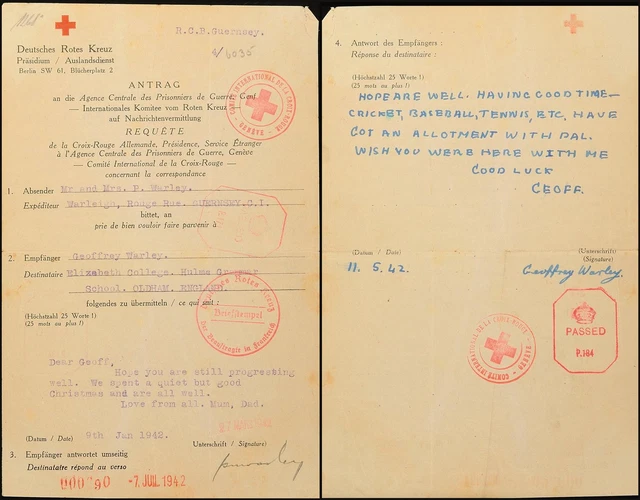 R.C.B.Guernsey.
Deutsches Rotes Kreuz
Präsidium / Auslandsdienst
Berlin SW 61, Blücherplatz 2
ANTRAG
an die Agence Centrale des Prisonniers de Guerre, Genf
— Internationales Komitee vom Roten Kreuz —
auf Nachrichtenvermittlung
REQUÊTE
de la Croix-Rouge Allemande, Présidence, Service Étranger
à l'Agence Centrale des Prisonniers de Guerre, Genève
— Comité International de la Croix-Rouge —
concernant la correspondance
COMITÉ INTERNATIONAL DE LA CROIX-ROUGE
GENÈVE
1. Absender Mr and Mrs. P. Warley.
Expéditeur Warleigh, Rouge Rue. GUERNSEY.C.I.
bittet, an
prie de bien vouloir faire parvenir à
2. Empfänger Geoffrey Warley.
Destinataire Elizabeth College. Hulme Grammar
School. OLDHAM, ENGLAND
folgendes zu übermitteln / ce qui suit :
(Höchstzahl 25 Worte !)
(25 mots au plus !)
Briefstempel
Dear Geoff,
Hope you are still progressing
well. We spent a quiet but good
Christmas and are all well.
Love from all. Mum, Dad.
(Datum / Date) 9th Jan 1942.
Unterschrift / Signature)
3. Empfänger antwortet umseitig
Destinataire répond au verso
-7 JUIL 1942
4. Antwort des Empfängers :
Réponse du destinataire :
(Höchstzahl 25 Worte !)
(25 mots au plus !)
HOPE ARE WELL. HAVING GOOD TIME—
CRICKET, BASEBALL, TENNIS, ETC. HAVE
GOT AN ALLOTMENT WITH PAL.
WISH YOU WERE HERE WITH ME
GOOD LUCK
GEOFF.
(Datum / Date)
(Unterschrift)
(Signature)
11. 5. 42.
Geoffrey Warley.
COMITÉ INTERNATIONAL DE LA CROIX-ROUGE
GENÈVE
PASSED
P.184